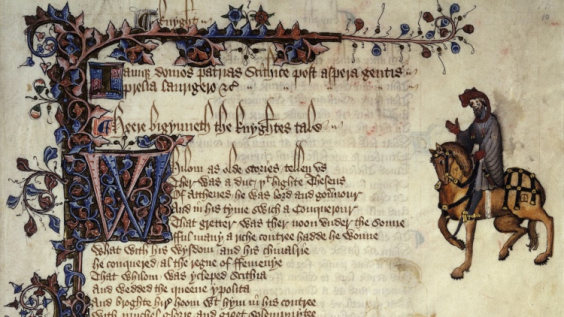 Knyght
Iamqz domos patrias Scithice post aspera gentis
prelia laurigero &c
Heere bigynneth the knyghtes tale
Whilom as olde stories tellen vs
Ther was a duc þt highte Theseus
Of Atthenes he was lord and gouernour
And in his tyme swich a Conquerour
That gretter was ther noon vnder the sonne
fful many a riche contree hadde he wonne
What with his wysdom and his chiualrie
he conquered al the regne of ffemenye
That whilom was ycleped Scithia
And wedded the queene ypolita
And broghte hir hoom wt hym in his contree
With muchel glorie and greet solempnytee